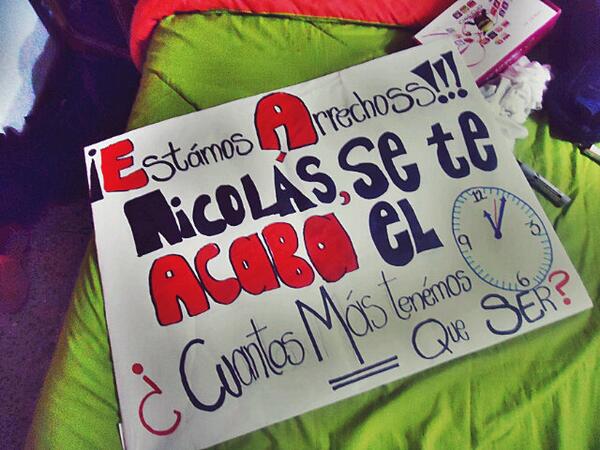 ¡Estámos Arrechoss!!!
Nicolás, se te
acaba el
12
3
6
9
¿Cuantos Más tenémos
Que SER?